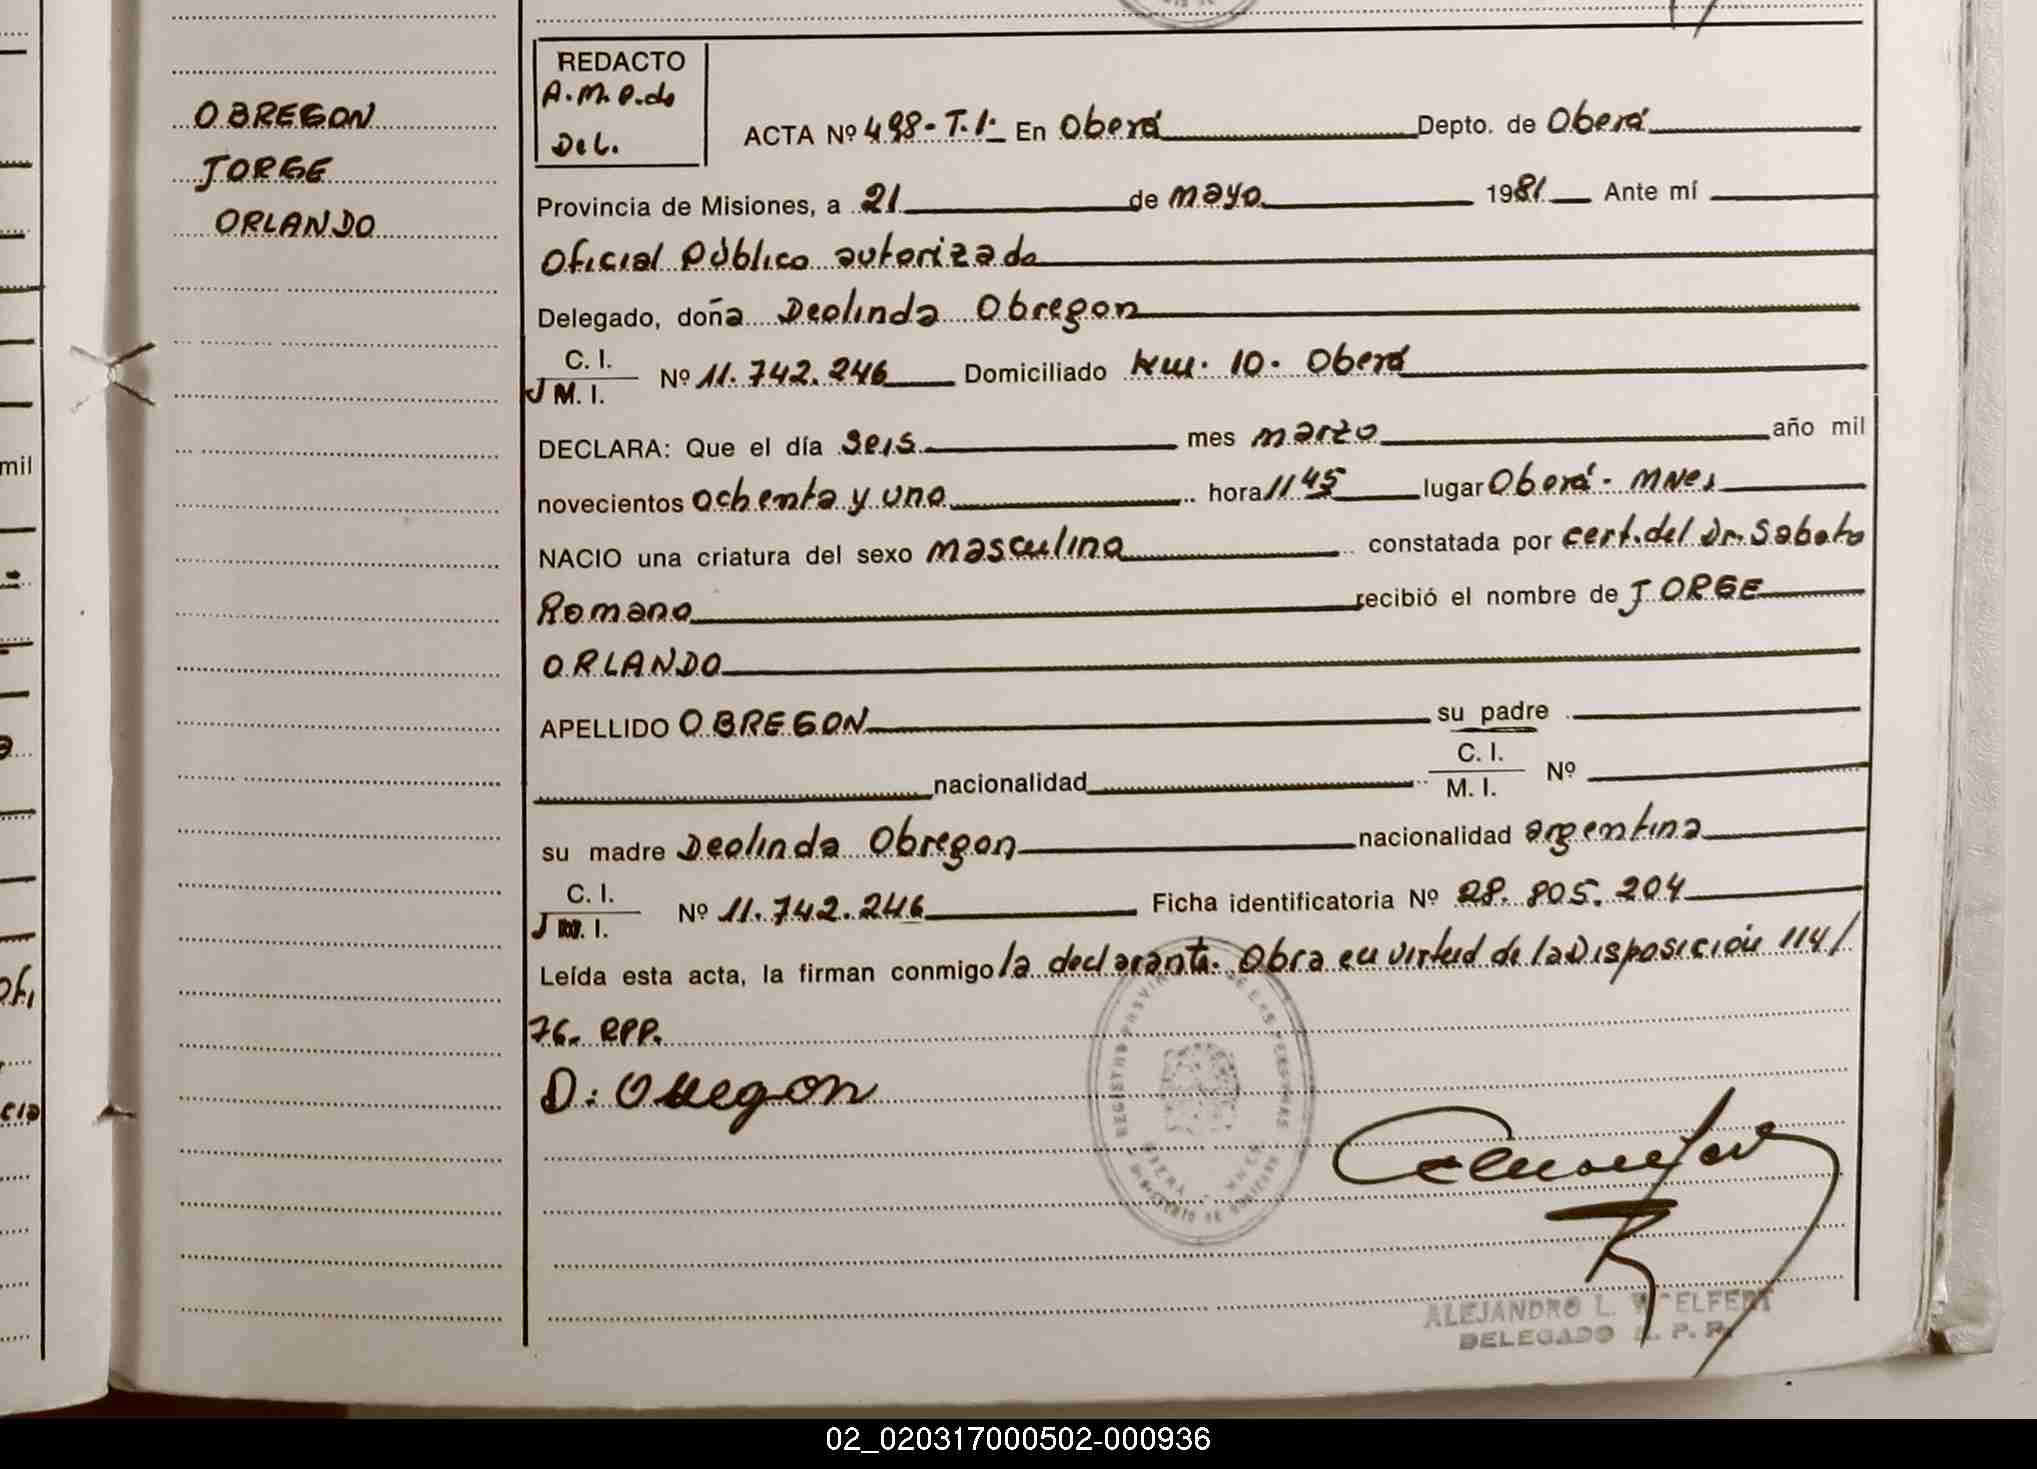 OBREGON
JORGE
ORLANDO
REDACTO
A.M.P.de
Del.
ACTA Nº 498-T.I. En Oberá Depto. de Oberá
Provincia de Misiones, a 21 de mayo 1981 Ante mí
Oficial Público autorizado
Delegado, doña Deolinda Obregon
C. I.
J M. I. Nº 11.742.246 Domiciliado Km. 10. Oberá
DECLARA: Que el día seis mes marzo año mil
novecientos ochenta y uno hora 11 45 lugar Oberá - Mnes
NACIO una criatura del sexo masculino constatada por cert. del Dr. Sabato
Romano recibió el nombre de JORGE
ORLANDO
APELLIDO OBREGON su padre
nacionalidad C. I. M. I. Nº
su madre Deolinda Obregon nacionalidad argentina
C. I.
J M. I. Nº 11.742.246 Ficha identificatoria Nº 28.805.204
Leída esta acta, la firman conmigo la declarante. Obra en virtud de la Disposición 114/
76. RPP.
D. Obregon
ALEJANDRO L.
DELEGADO R. P. P.
mil
02_020317000502-000936